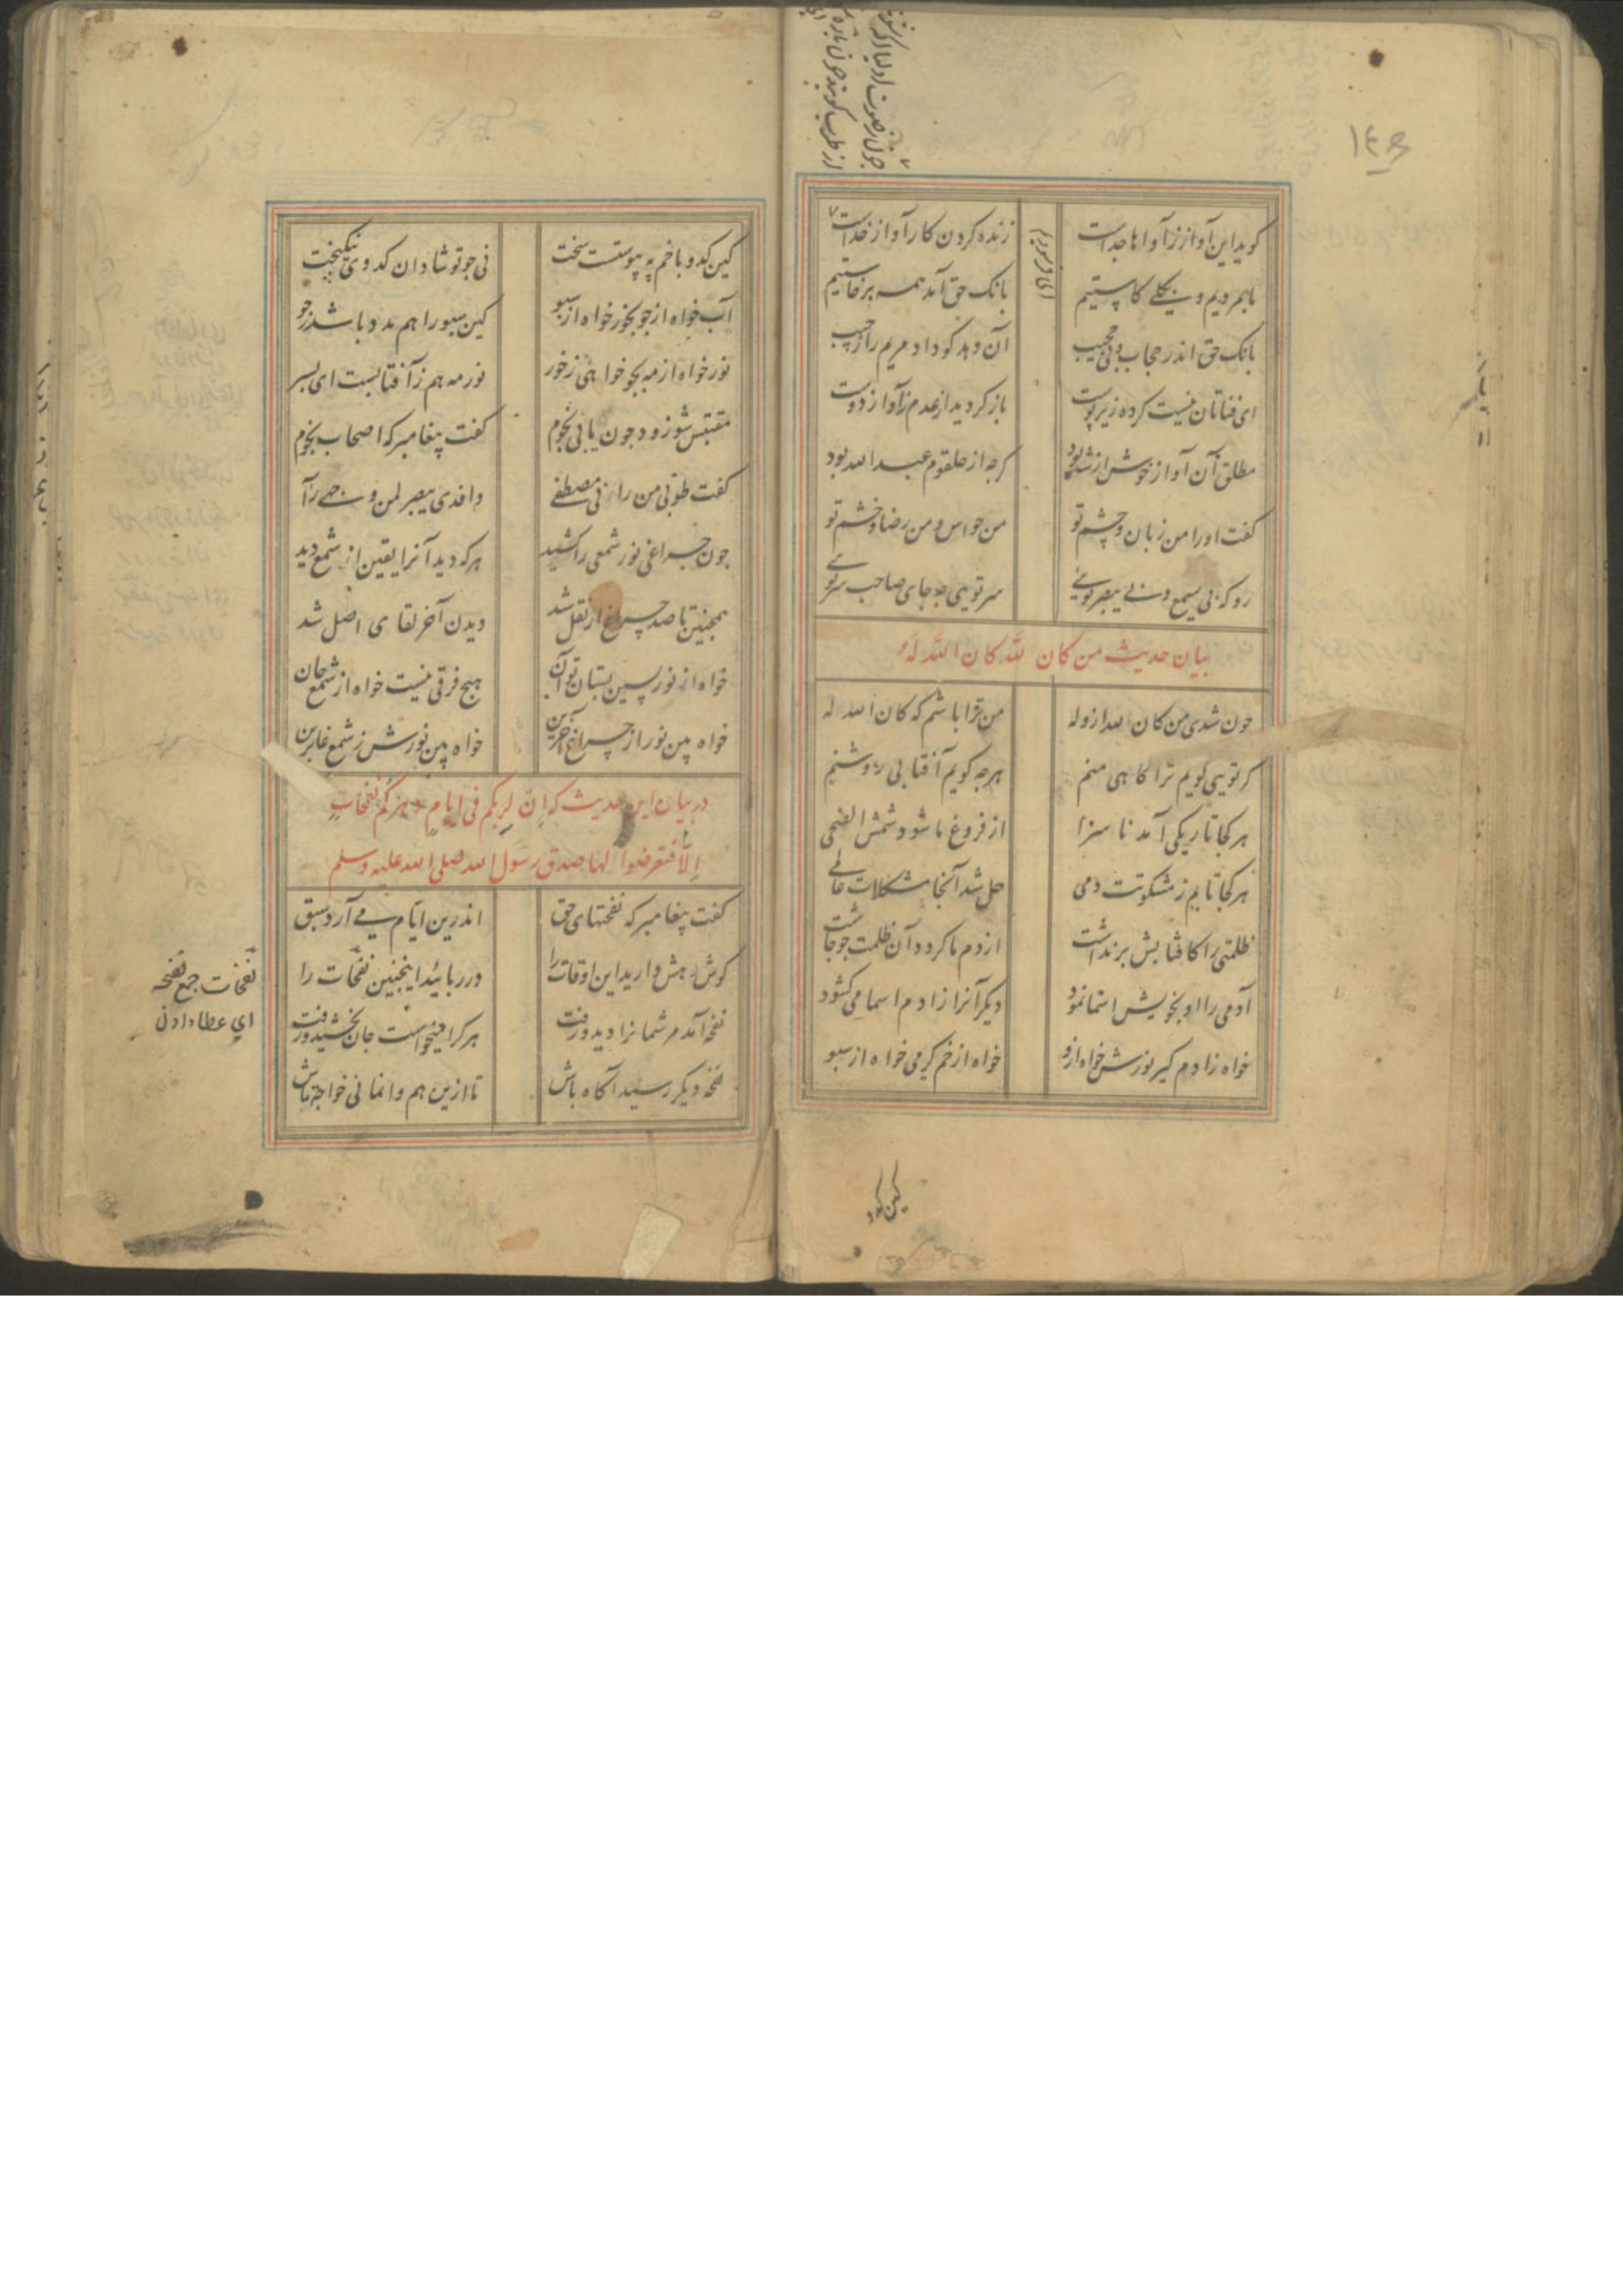 ۱۴۵
کوید این آواز زآواها جداست
زنده کردن کار آواز خداست
ما بمردیم و بکلی کاستیم
بانک حق آمد همه برخاستیم
بانک حق اندر حجاب و بی حجیب
آن دهد کو داد مریم را ز جیب
ای فناتان نیست کرده زیر پوست
باز کردید از عدم زآواز دوست
مطلق آن آواز خوش از شه بود
کرچه از حلقوم عبد الله بود
کفت او را من زبان و چشم تو
من حواس و من رضا و خشم تو
رو که بی یسمع و بی یبصر تویی
سر تویی چه جای صاحب سر تویی
بیان حدیث من کان لله کان الله له
چون شدی من کان لله از وله
من ترا باشم که کان الله له
کر تویی کویم ترا کاهی منم
هرچه کویم آفتابی روشنم
هر کجا تاریکی آمد ناسزا
از فروغ ما شود شمس الضحی
هر کجا تابم ز مشکوتت دمی
حل شد آنجا مشکلات عالمی
ظلمتی را کافتابش برنداشت
از دم ما کردد آن ظلمت چو چاشت
آدمی را او بخویش اسما نمود
دیکرآنرا ز آدم اسما می کشود
خواه ز آدم کیر نورش خواه ازو
خواه از خم کیر می خواه از سبو
کین کدو
کین کدو با خم به پیوستست سخت
نی چو تو شادان کدوی نیکبخت
آب خواه از جو بجو خواه از سبو
کین سبو را هم مدد باشد ز جو
نور خواه از مه بجو خواهی ز خور
نور مه هم زآفتابست ای پسر
مقتبس شو زود چون یابی نجوم
کفت پیغامبر که اصحاب نجوم
کفت طوبی من رانی مصطفی
و الذی یبصر لمن وجهی رآ
چون چراغی نور شمعی را کشید
هر که دید آنرا یقین از شمع دید
همچنین تا صد چراغ ار نقل شد
دیدن آخر لقای اصل شد
خواه از نور پسین بستان تو آن
هیچ فرقی نیست خواه از شمع جان
خواه بین نور از چراغ آخرین
خواه بین نورش ز شمع غابرین
در بیان این حدیث که اِنّ لربکم فی ایام دهرکم نفحاتٍ
اِلّا فتعرضوا لها صدق رسول الله صلی الله علیه وسلم
کفت پیغامبر که نفحتهای حق
اندرین ایّام می آرد سبق
کوش و هش دارید این اوقات را
در ربائید اینچنین نفحات را
نفحه آمد مر شما را دید و رفت
هر کرا میخواست جان بخشید و رفت
نفحه دیکر رسید آکاه باش
تا ازین هم وانمانی خواجه تاش
نفحات جمع نفحه
ای عطا دادن